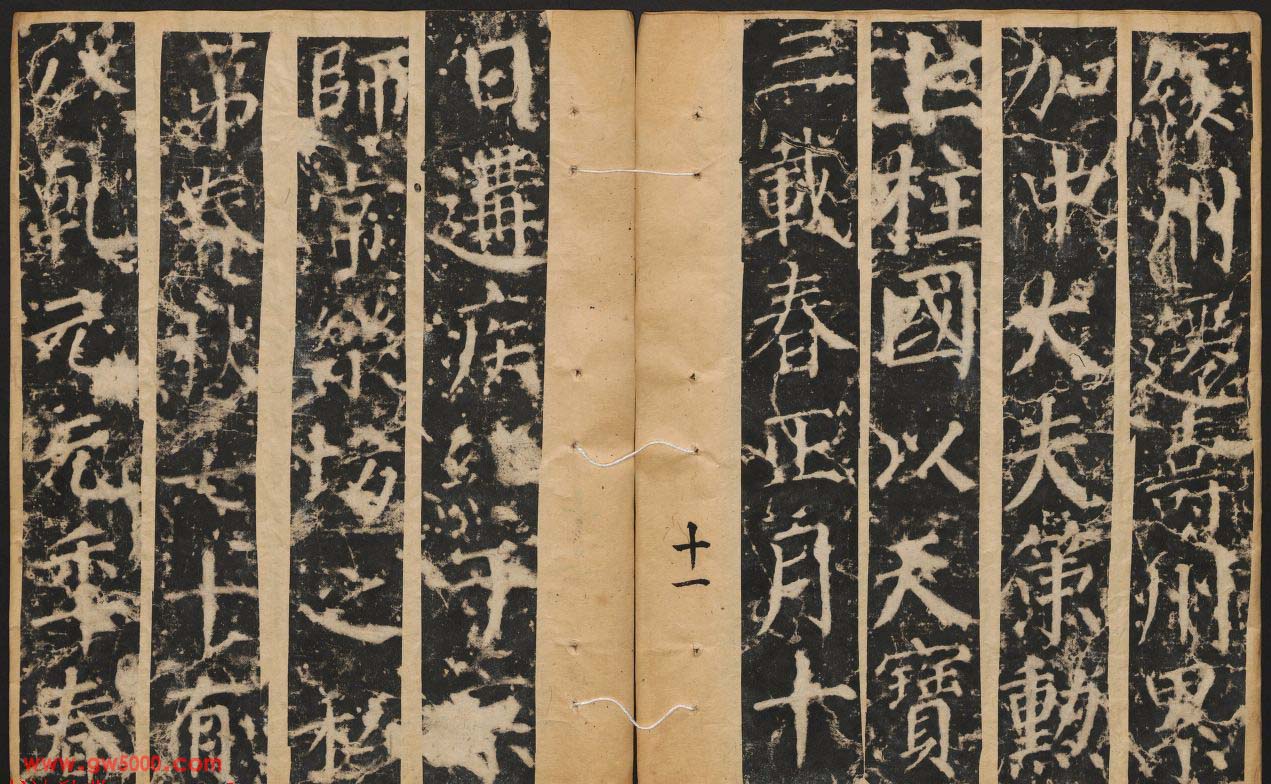 綏州迁壽州累
加中大夫策勳
上柱國以天寶
三載春正月十
十一
日遘病終于
師常樂坊之私
第春秋七十有
代乾元元年春
www.gw5000.com